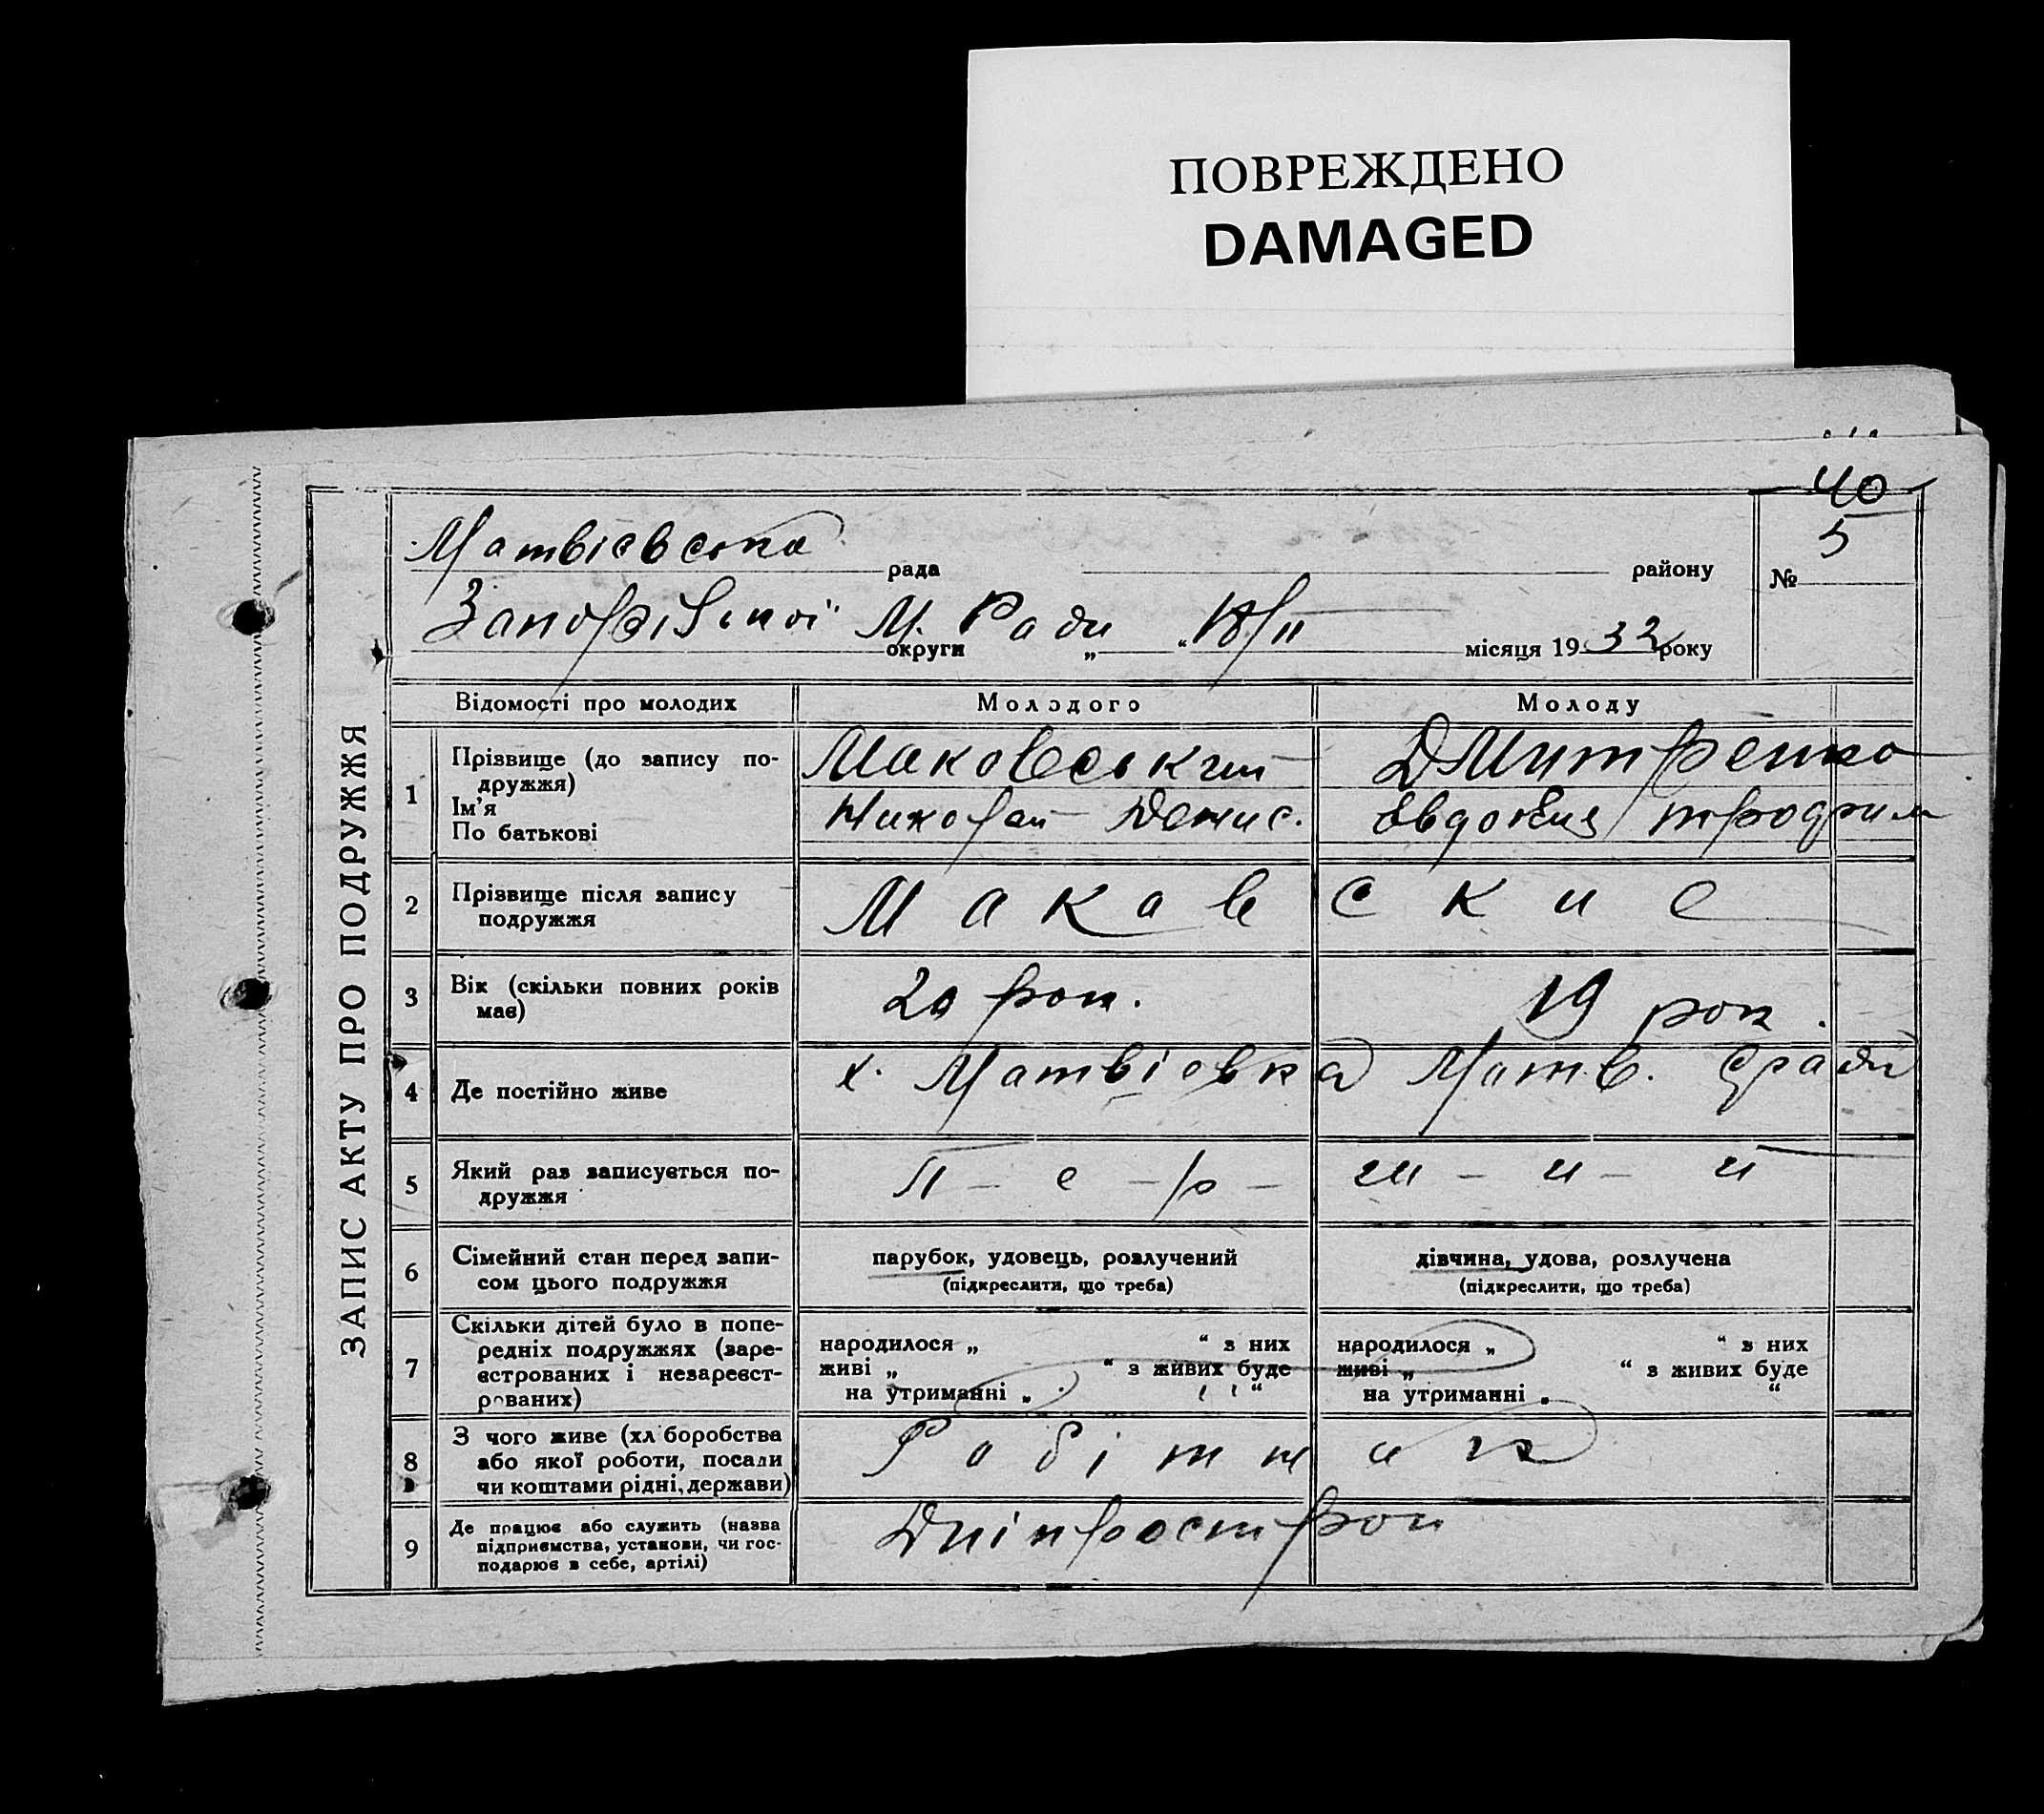 ПОВРЕЖДЕНО
DAMAGED
40
5
Матвієвська рада району №
Запорізької М. Ради „ “ 18/II округи місяця 1932 року
ЗАПИС АКТУ ПРО ПОДРУЖЖЯ
Відомості про молодих Молодого Молоду
1 Прізвище (до запису по-
дружжя)
Ім'я
По батькові
Маковський Дмитренко
Николай Денис. Евдокия трофим
2 Прізвище після запису
подружжя
Макавские
3 Вік (скільки повних років
має)
20 рок. 19 рок.
4 Де постійно живе
х. Матвієвка Матв. с/ради
5 Який раз записується по-
дружжя
П - е - р - ш - и - й
6 Сімейний стан перед запи-
сом цього подружжя
парубок, удовець, розлучений
(підкреслити, що треба)
дівчина, удова, розлучена
(підкреслити, що треба)
7 Скільки дітей було в попе-
редніх подружжях (заре-
єстрованих і незареєст-
рованих)
народилося „ “ з них
живі „ “ з живих буде
на утриманні „ “
народилося „ “ з них
живі „ “ з живих буде
на утриманні „ “
8 З чого живе (хліборобства
або якої роботи, посади
чи коштами рідні, держави)
Робітник
9 Де працює або служить (назва
підприємства, установи, чи гос-
подарює в себе, артілі)
Дніпрострой